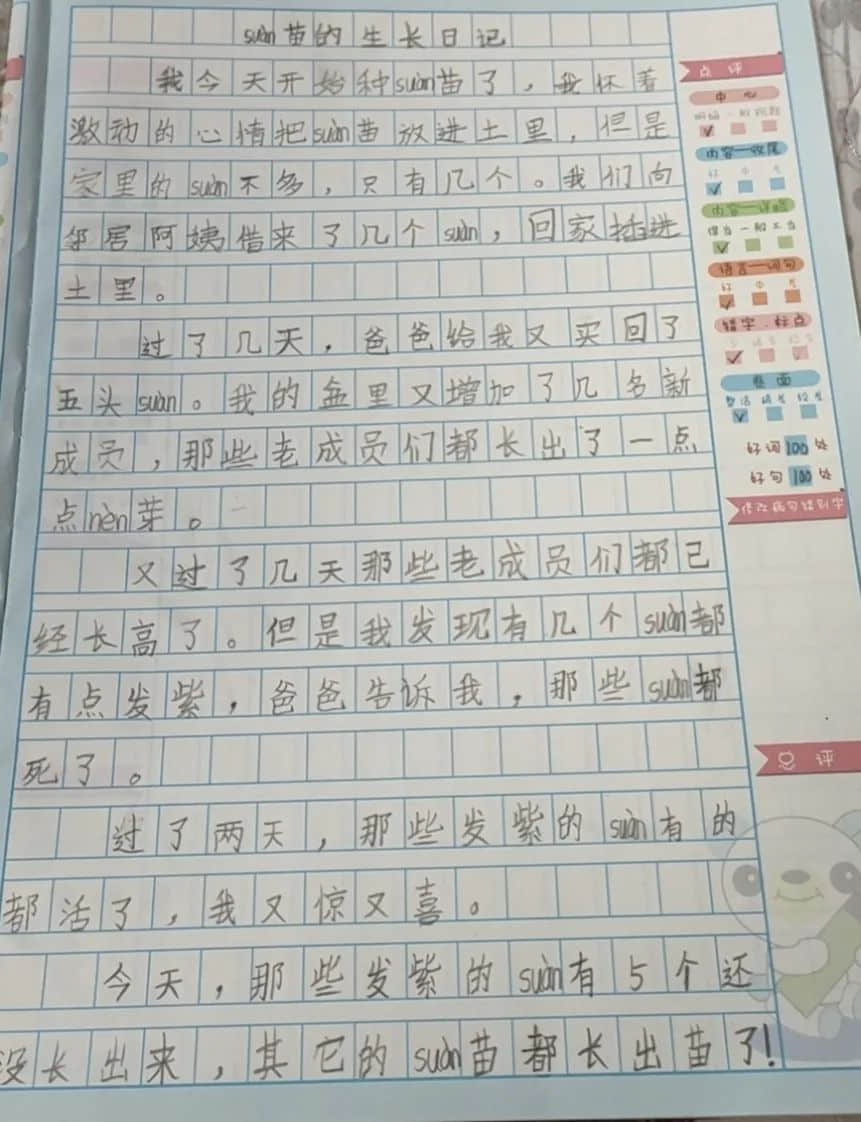 suàn苗的生长日记
我今天开始种suàn苗了，我怀着
激动的心情把suàn苗放进土里，但是
家里的suàn不多，只有几个。我们向
邻居阿姨借来了几个suàn，回家插进
土里。
过了几天，爸爸给我又买回了
五头suàn。我的盆里又增加了几名新
成员，那些老成员们都长出了一点
点nèn芽。
又过了几天那些老成员们都已
经长高了。但是我发现有几个suàn都
有点发紫，爸爸告诉我，那些suàn都
死了。
过了两天，那些发紫的suàn有的
都活了，我又惊又喜。
今天，那些发紫的suàn有5个还
没长出来，其它的suàn苗都长出苗了!
点评
中心
明确 一般
内容—收尾
好 中 差
内容—详略
得当 一般 不当
语言—词句
好 中 差
错字·标点
卷面
整洁
好词100处
好句100处
修改病句错别字
总评